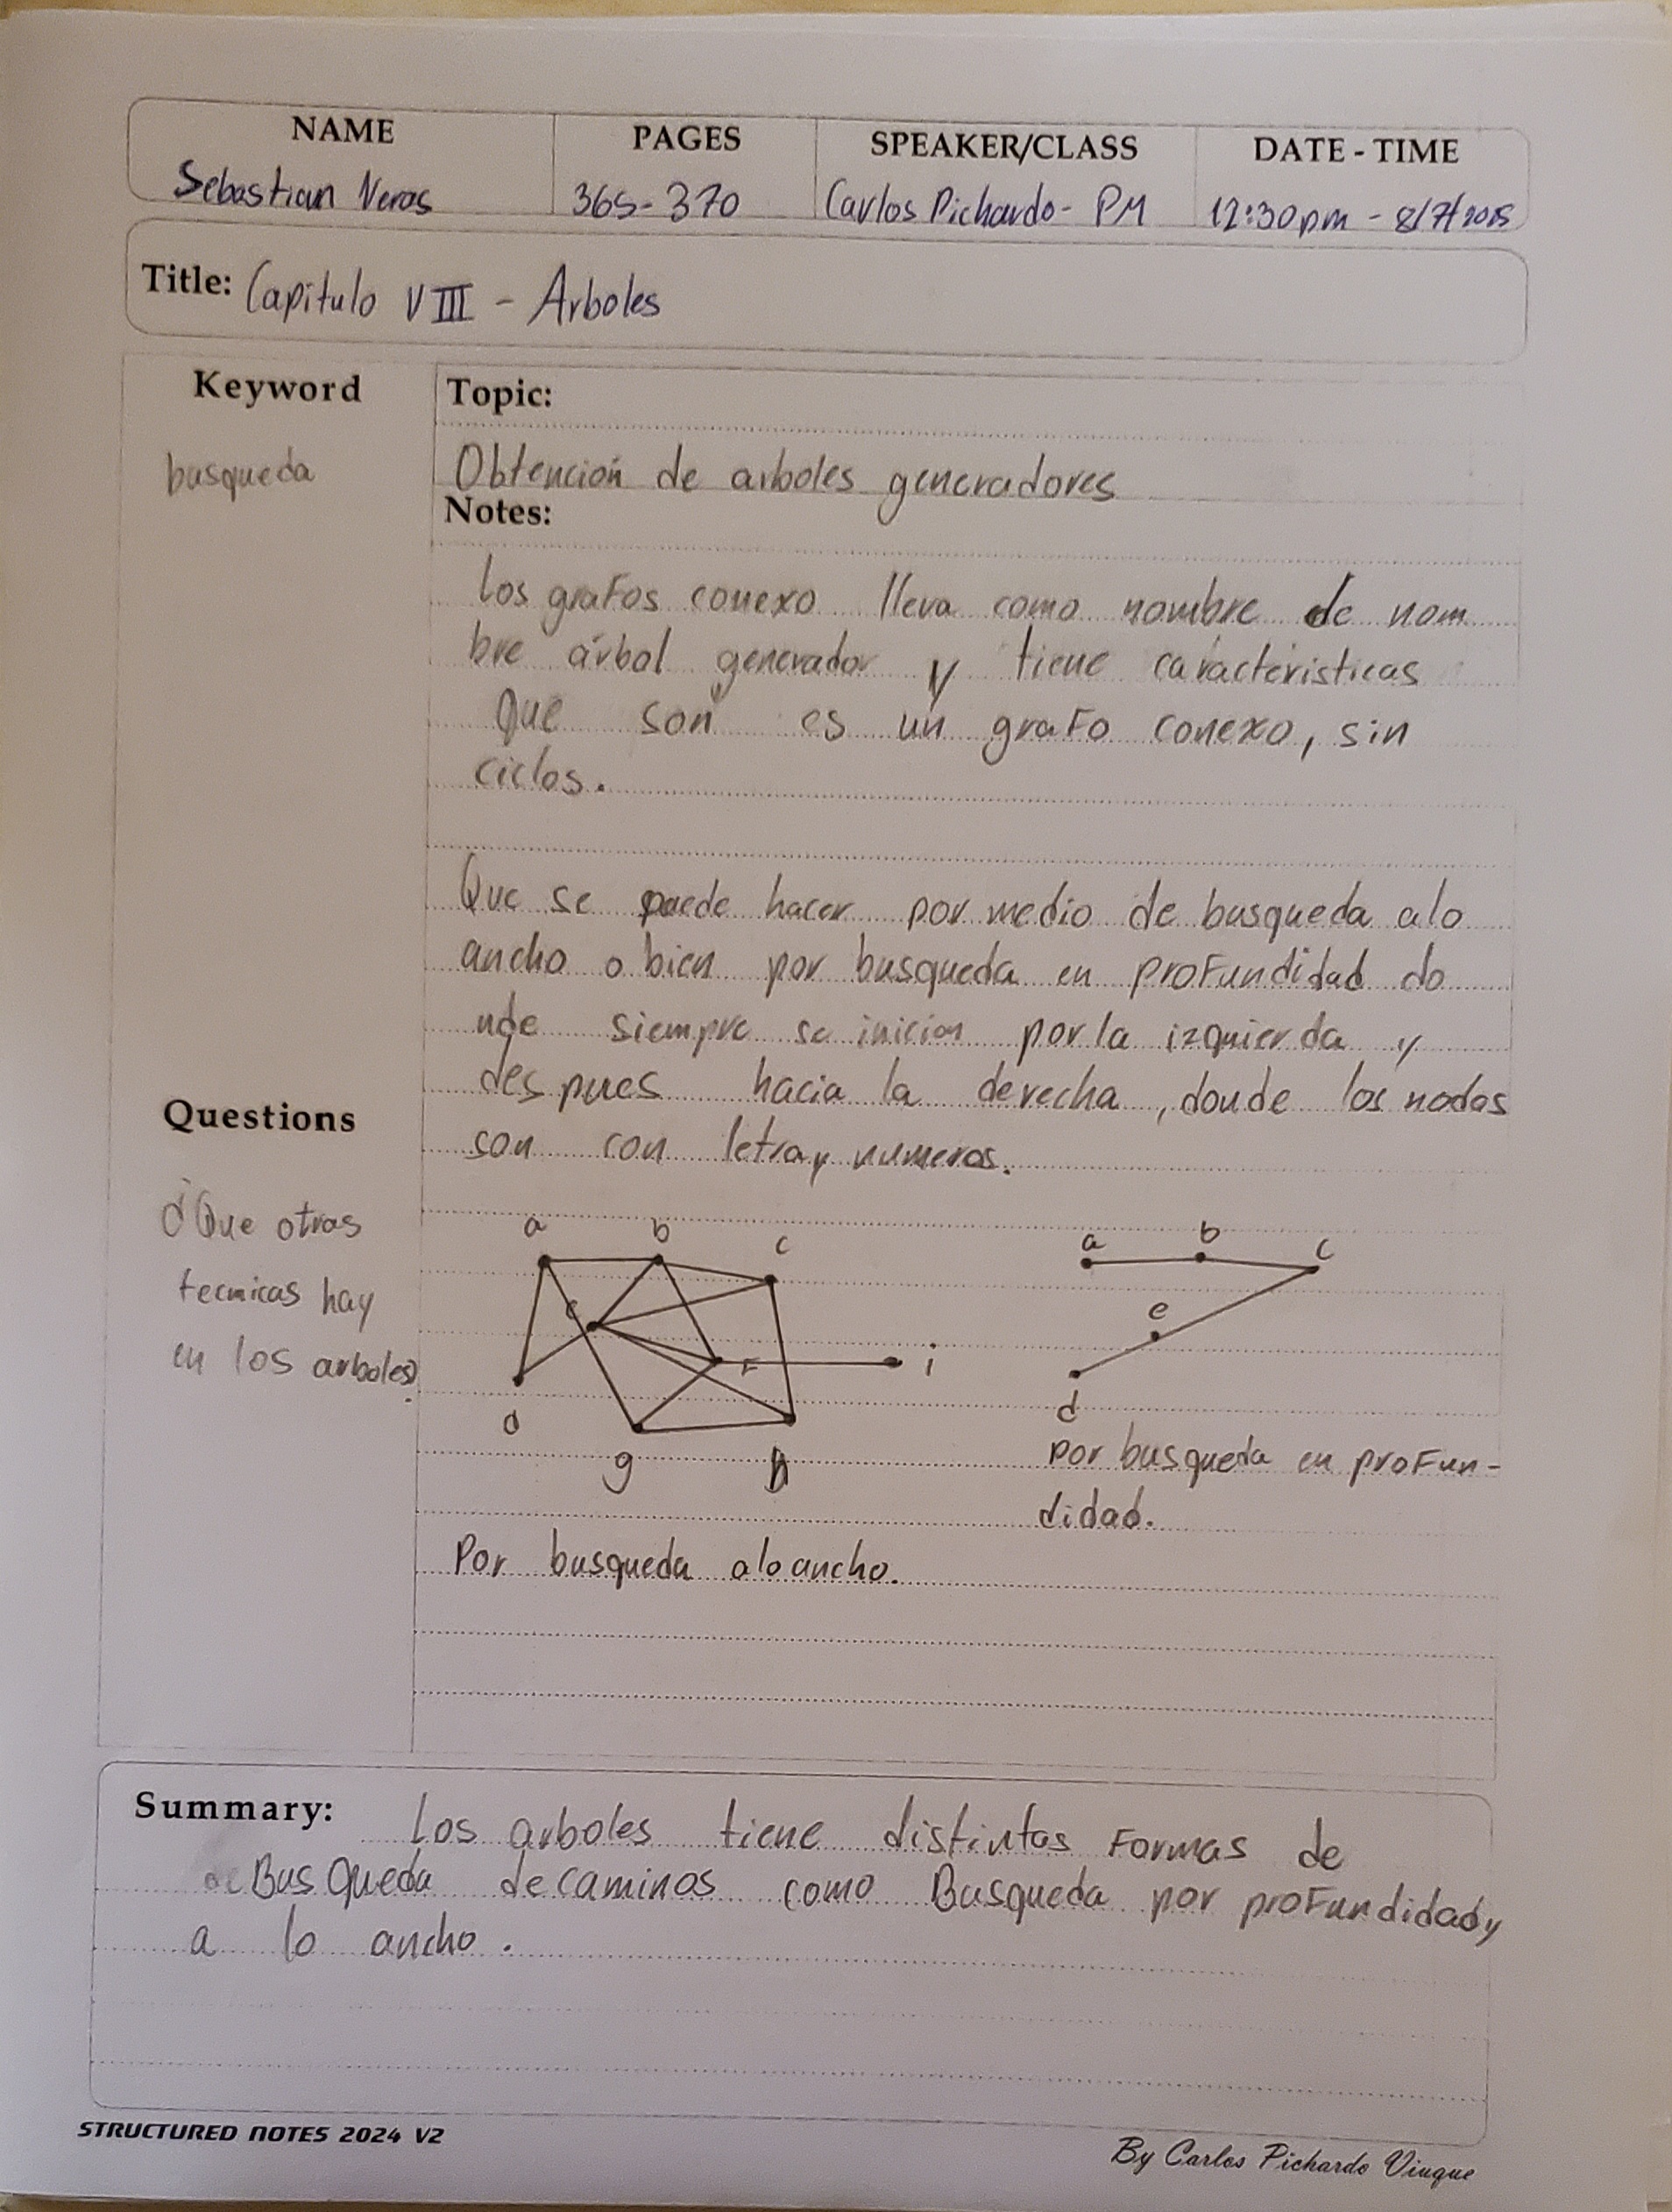 NAME PAGES SPEAKER/CLASS DATE - TIME
Sebastian Veras 365-370 Carlos Pichardo- PM 12:30pm - 8/7/2025
Title: Capitulo VIII - Arboles
Keyword
busqueda
Topic:
Obtención de arboles generadores
Notes:
Los grafos conexo lleva como nombre de nom
bre árbol generador y tiene carácteristicas
Que son es un grafo conexo, sin
ciclos.
Que se puede hacer por medio de busqueda alo
ancho o bien por busqueda en profundidad do
nde siempre se inician por la izquierda y
des pues hacia la derecha, donde los nodos
son con letra y numeros.
Questions
¿Que otras
tecnicas hay
en los arboles?
a b c
e
F i
d
g h
a b c
e
d
por busqueda en profun-
didad.
Por busqueda alo ancho.
Summary: Los arboles tiene distintas Formas de
de Busqueda de caminos como Busqueda por profundidad y
a lo ancho.
STRUCTURED NOTES 2024 V2
By Carlos Pichardo Viuque